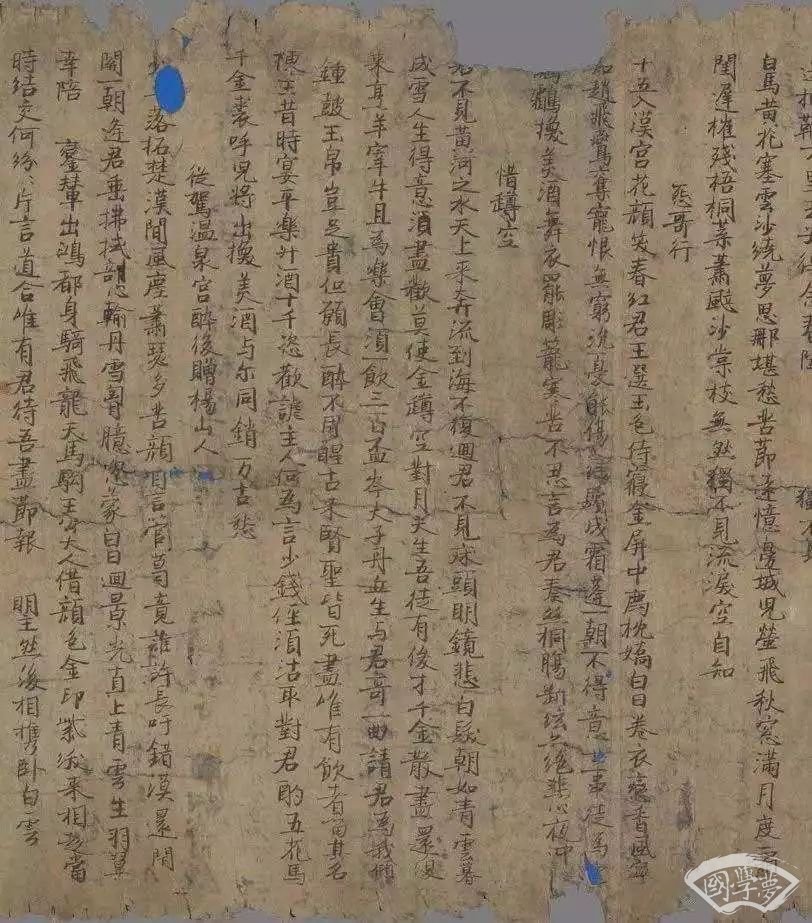 白馬黃花塞雲沙繞夢思那堪愁苦節遠憶邊城兒螢飛秋窓滿月度霜
閨遲摧殘梧桐葉蕭颯沙棠枝無然獨不見流淚空自知
怨哥行
十五入漢宮花顏笑春紅君王選玉色侍寢金屏中薦枕嬌白日卷衣戀香風寧
知趙飛鷰奪寵恨無窮沉憂能傷人綠鬢成霜蓬一朝不得意世事徒為空
鸘換美酒舞衣罷彫籠寒苦不忍言為君奏絲桐腸斷弦亦絕悲心夜忡
惜罇空
君不見黃河之水天上來奔流到海不復迴君不見床頭明鏡悲白髮朝如青雲暮
成雪人生得意須盡歡莫使金罇空對月天生吾徒有俊才千金散盡還復
來烹羊宰牛且為樂會須一飲三百盃岑夫子丹丘生与君哥一曲請君為我傾
鍾鼓玉帛豈足貴但願長醉不用醒古來賢聖皆死盡唯有飲者留其名
陳王昔時宴平樂斗酒十千恣歡謔主人何為言少錢徑須沽取對君酌五花馬
千金裘呼兒將出換美酒与尔同銷万古愁
從駕溫泉宮醉後贈楊山人
少年落拓楚漢間風塵蕭瑟多苦顏自言管葛竟誰許長吁錯漠還閉
關一朝逢君垂拂拭剖心輸丹雪胷臆忽蒙白日迴景光直上青雲生羽翼
幸陪 鑾輦出鴻都身騎飛龍天馬駒王公大人借顏色金印紫綬來相趨當
時結交何紛〻片言道合唯有君待吾盡節報 明主然後相携臥白雲
國學夢